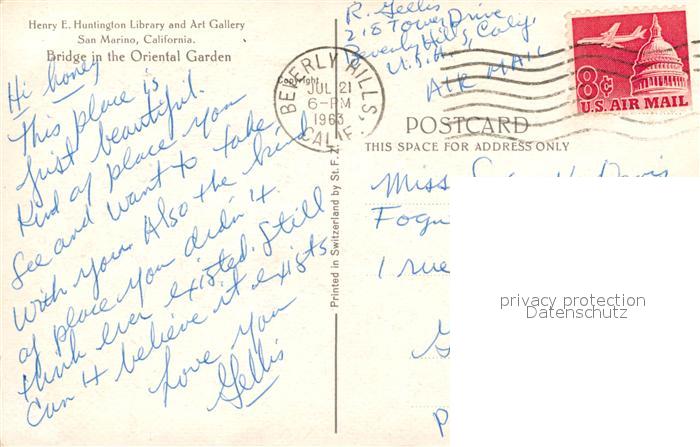 Henry E. Huntington Library and Art Gallery
San Marino, California.
Bridge in the Oriental Garden
Hi honey
This place is
just beautiful.
Kind of place you
see and want to take
with you. Also the kind
of place you didn't
think ever existed. Still
can't believe it exists.
Love you
Gellis
Copyright
BEVERLY HILLS,
CALIF.
JUL 21
6-PM
1963
Printed in Switzerland by St. F. Z.
R. Gellis
218 Tower Drive
Beverly Hills, Calif.
U.S.A.
AIR MAIL
8¢
U.S. AIR MAIL
POSTCARD
THIS SPACE FOR ADDRESS ONLY
Miss
1 rue
privacy protection
Datenschutz